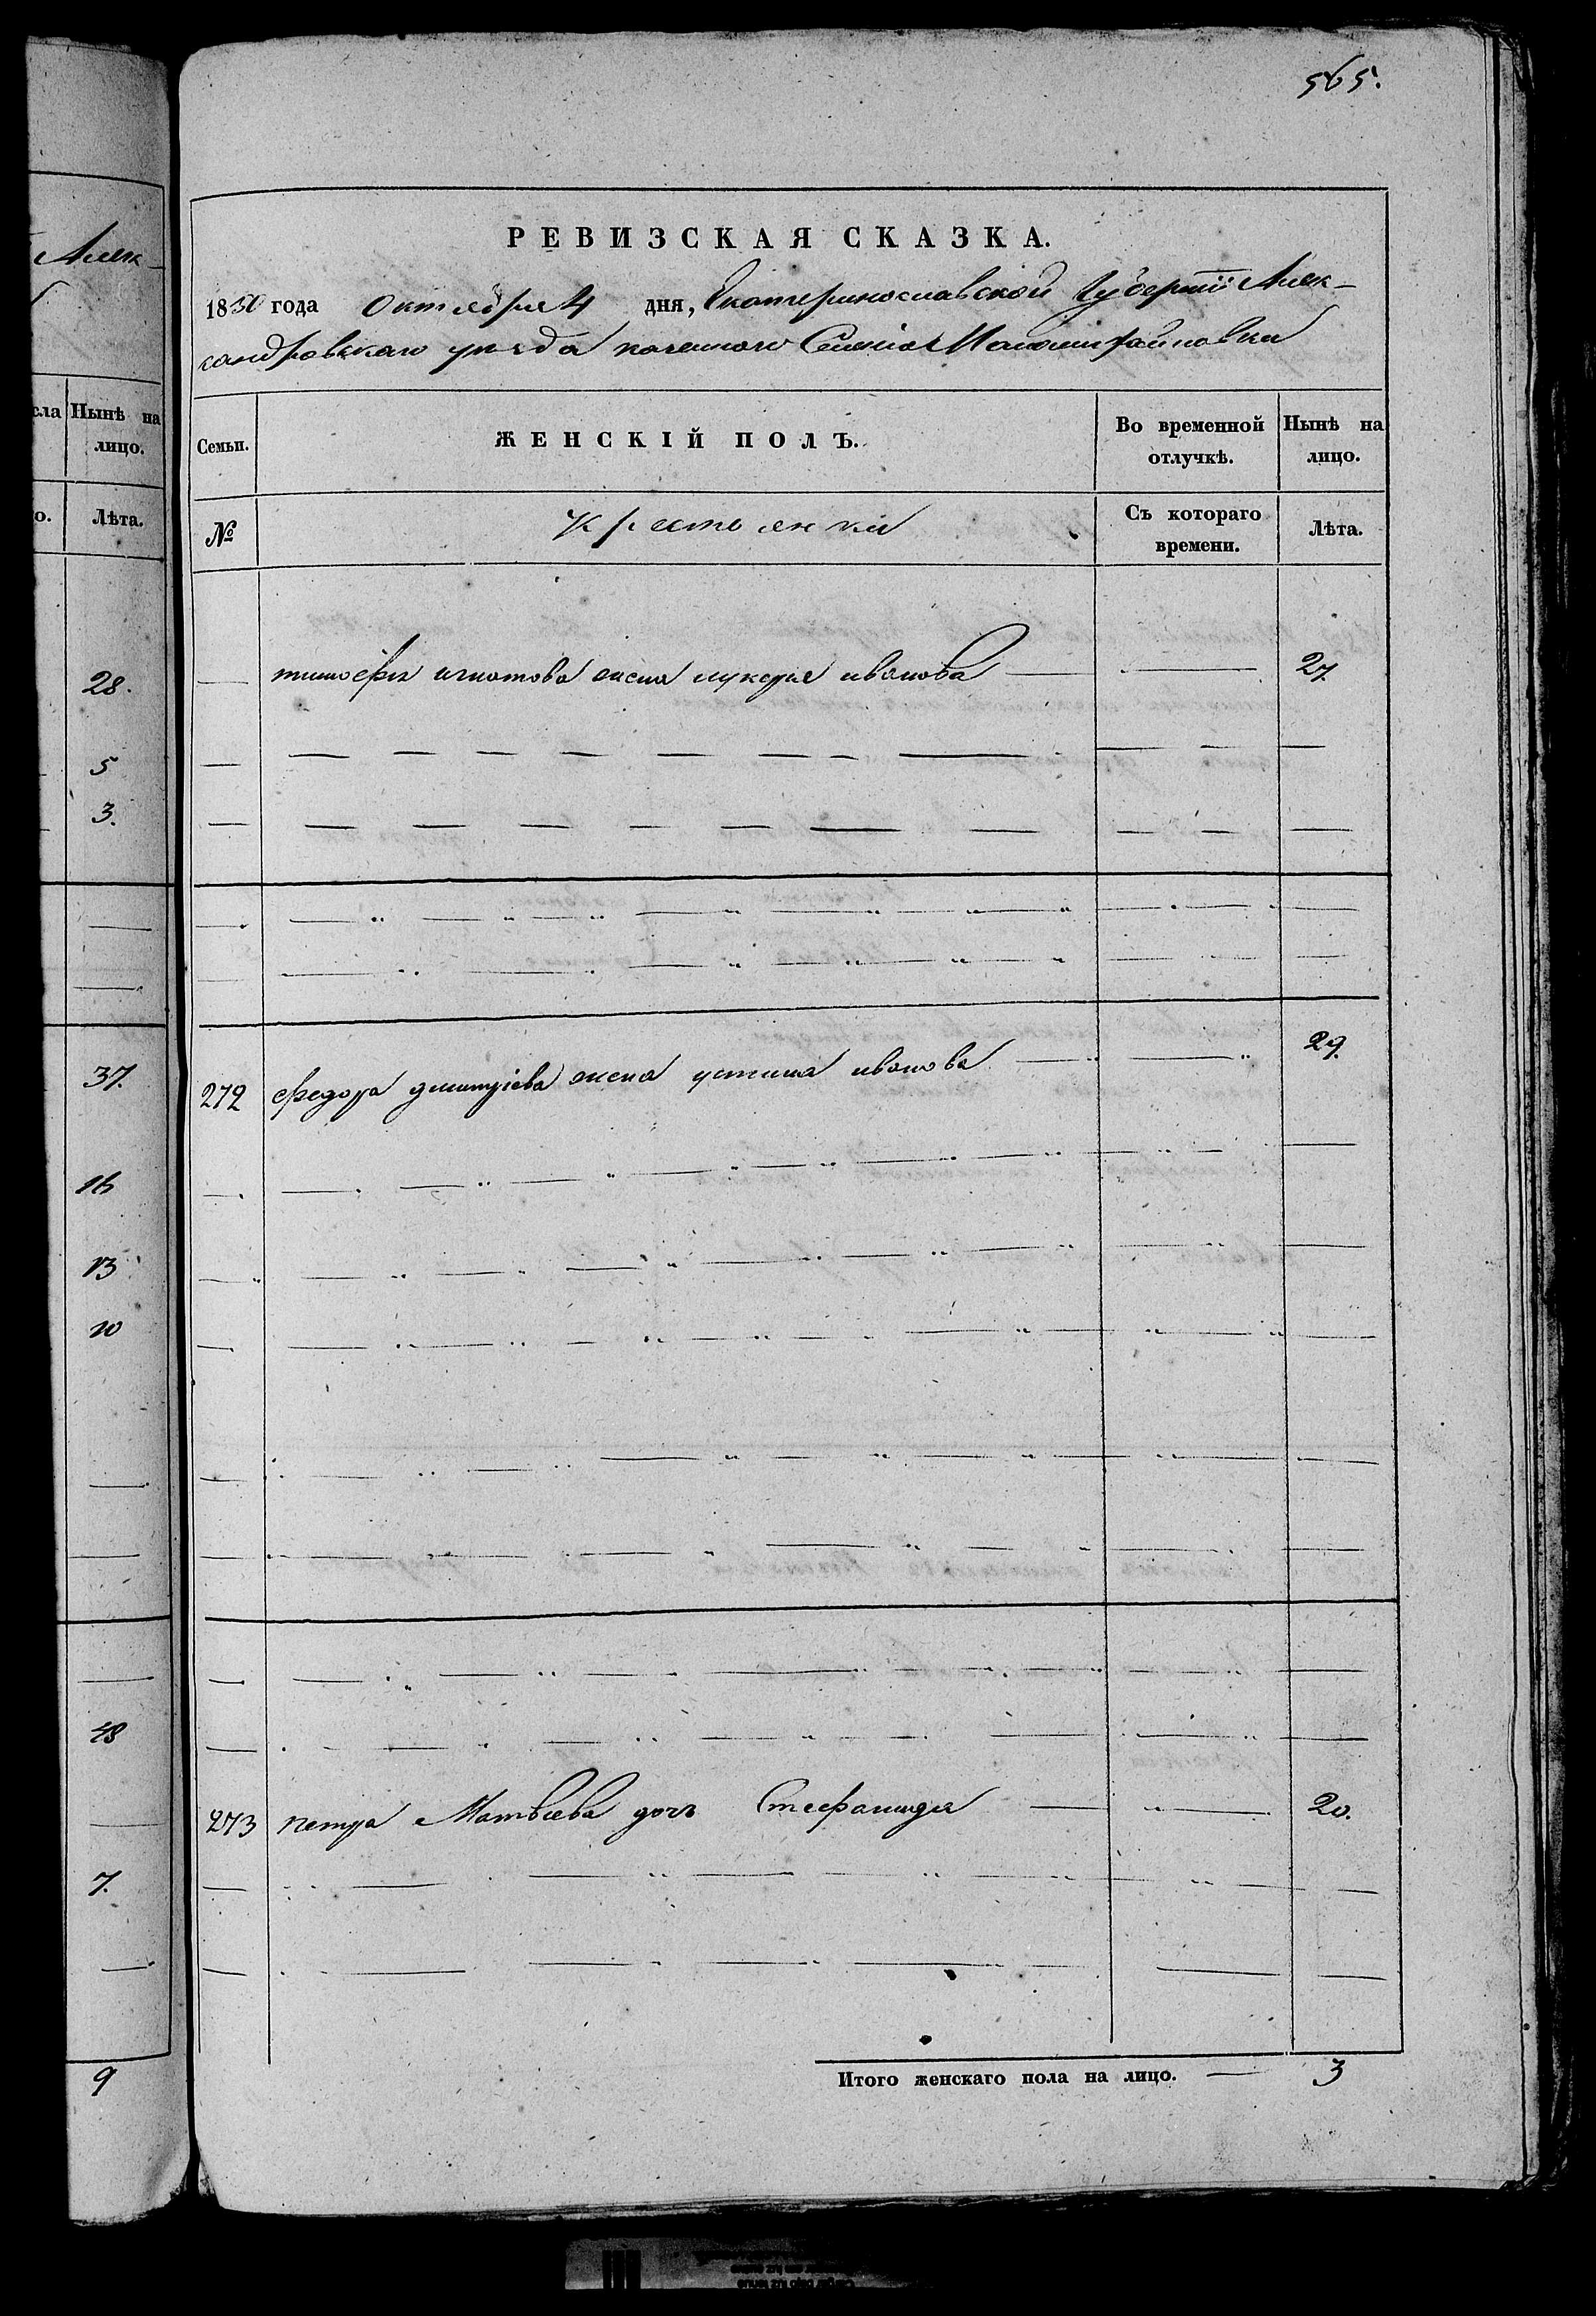 565.
Алек-
РЕВИЗСКАЯ СКАЗКА.
1850 года октября 4 дня, Екатеринославской Губернiи Алек-
сандровскаго уезда казенного Селенiя
сла Нынѣ на лицо.
о. Лѣта.
Семьи. ЖЕНСКІЙ ПОЛЪ. Во временной отлучкѣ. Нынѣ на лицо.
№ Крестьянки Съ котораго времени. Лѣта.
28. тимофея игнатова жена лукерья иванова 27
5
3.
37. 272 федора дмитрiева жена устина иванова 29.
16
13
10
48
273 петра Матвѣева дочь Стефанида 20.
7.
9 Итого женскаго пола на лицо. 3